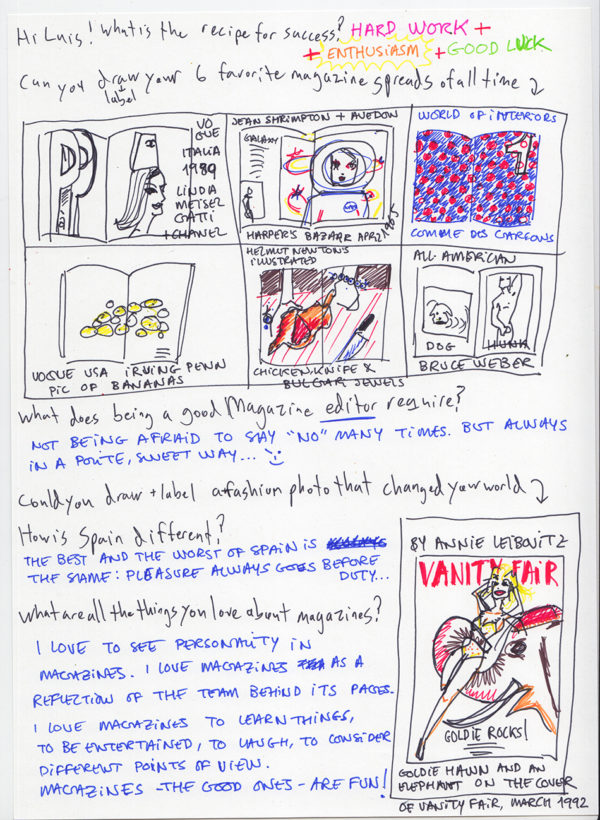 Hi Luis! What is the recipe for success? HARD WORK +
+ ENTHUSIASM + GOOD LUCK
Can you draw your 6 favorite magazine spreads of all time
+
label
VO
GUE
ITALIA
1989
LINDA
MEISEL
GATTI
+ CHANEL
JEAN SHRIMPTON + AVEDON
GALAXY
HARPER'S BAZAAR APRIL 1965
WORLD OF INTERIORS
1
COMME DES GARÇONS
VOGUE USA IRVING PENN
PIC OF BANANAS
HELMUT NEWTON'S
ILLUSTRATED
CHICKEN, KNIFE &
BULGARI JEWELS
ALL AMERICAN
DOG
HUNK
BRUCE WEBER
What does being a good Magazine editor require?
NOT BEING AFRAID TO SAY "NO" MANY TIMES. BUT ALWAYS
IN A POLITE, SWEET WAY...
Could you draw + label a fashion photo that changed your world
How is Spain different?
THE BEST AND THE WORST OF SPAIN IS
THE SAME: PLEASURE ALWAYS GOES BEFORE
DUTY...
What are all the things you love about magazines?
I LOVE TO SEE PERSONALITY IN
MAGAZINES. I LOVE MAGAZINES AS A
REFLECTION OF THE TEAM BEHIND ITS PAGES.
I LOVE MAGAZINES TO LEARN THINGS,
TO BE ENTERTAINED, TO LAUGH, TO CONSIDER
DIFFERENT POINTS OF VIEW.
MAGAZINES - THE GOOD ONES - ARE FUN!
BY ANNIE LEIBOVITZ
VANITY FAIR
GOLDIE ROCKS!
GOLDIE HAWN AND AN
ELEPHANT ON THE COVER
OF VANITY FAIR, MARCH 1992